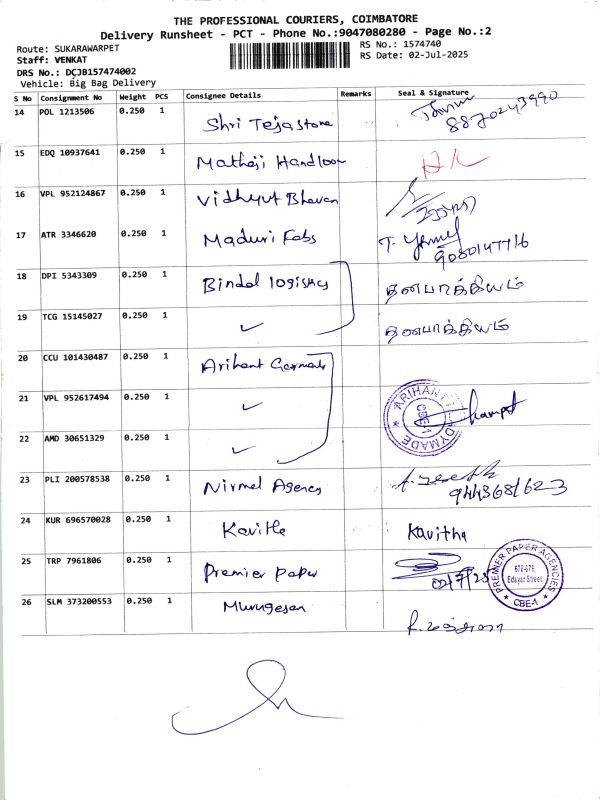 THE PROFESSIONAL COURIERS, COIMBATORE
Delivery Runsheet - PCT - Phone No.:9047080280 - Page No.:2
Route: SUKARAWARPET
Staff: VENKAT
DRS No.: DCJB157474002
Vehicle: Big Bag Delivery
RS No.: 1574740
RS Date: 02-Jul-2025
S No Consignment No Weight PCS Consignee Details Remarks Seal & Signature
14 POL 1213506 0.250 1 Shri Teja Store 8870243990
15 EDQ 10937641 0.250 1 Matheji Handloom
16 VPL 952124867 0.250 1 Vidhyut Bhavan
17 ATR 3346620 0.250 1 Maduri Fabs 9080147716
18 DPI 5343309 0.250 1 Bindal logistics தனபாக்கியம்
19 TCG 15145027 0.250 1 ✓ தனபாக்கியம்
20 CCU 101430487 0.250 1 Arihant Garments
21 VPL 952617494 0.250 1 ✓ ARIHANT READYMADE CBE-1
22 AMD 30651329 0.250 1 ✓
23 PLI 200578538 1 0.250 Nirmal Agency 9443681623
24 KUR 696570028 0.250 1 Kavitha Kavitha
25 TRP 7961806 0.250 1 Premier Paper 02/7/25 PREMIER PAPER AGENCIES Edayar Street, CBE-1
26 SLM 373200553 0.250 1 Murugesan